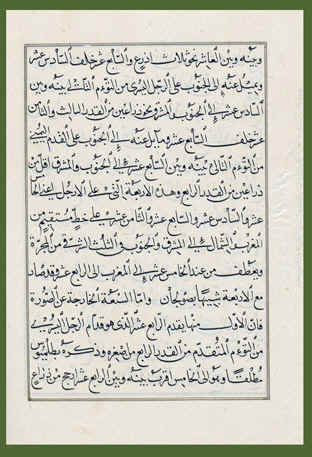 وبينه وبين العاشر نحو ثلاث اذرع والسابع عشر خلف السادس عشر
ويميل عنه الى الجنوب على الرجل اليسرى من التوءم التالى بينه وبين
السادس عشر الى الجنوب والمشرق نحو ذراعين من القدر الثالث والثامن
عشر خلف السابع عشر ومايل عنه الى الجنوب على القدم اليسرى
من التوءم التالى بينه وبين السابع عشر الى الجنوب والمشرق اقل من
ذراعين من القدر الرابع وهذه الاربعة التى على الارجل اعنى
عشر والسادس عشر والسابع عشر والثامن عشر على خط مستقيم من
المغرب الشمالى الى المشرق والجنوب فى من المجرة
وينعطف من عند الخامس عشر الى المغرب الى الرابع عشر وقد صار
مع الاربعة شبيها بصولجان واما السبعة الخارجة عن الصورة
فان الاول منها يقدم الرابع عشر الذى هو قدام الرجل اليسرى
من التوءم المتقدم من القدر الرابع من اصغره وذكره بطلميوس
مطلقا وهو الى الخامس اقرب بينه وبين الرابع عشر ارجح من ذراع